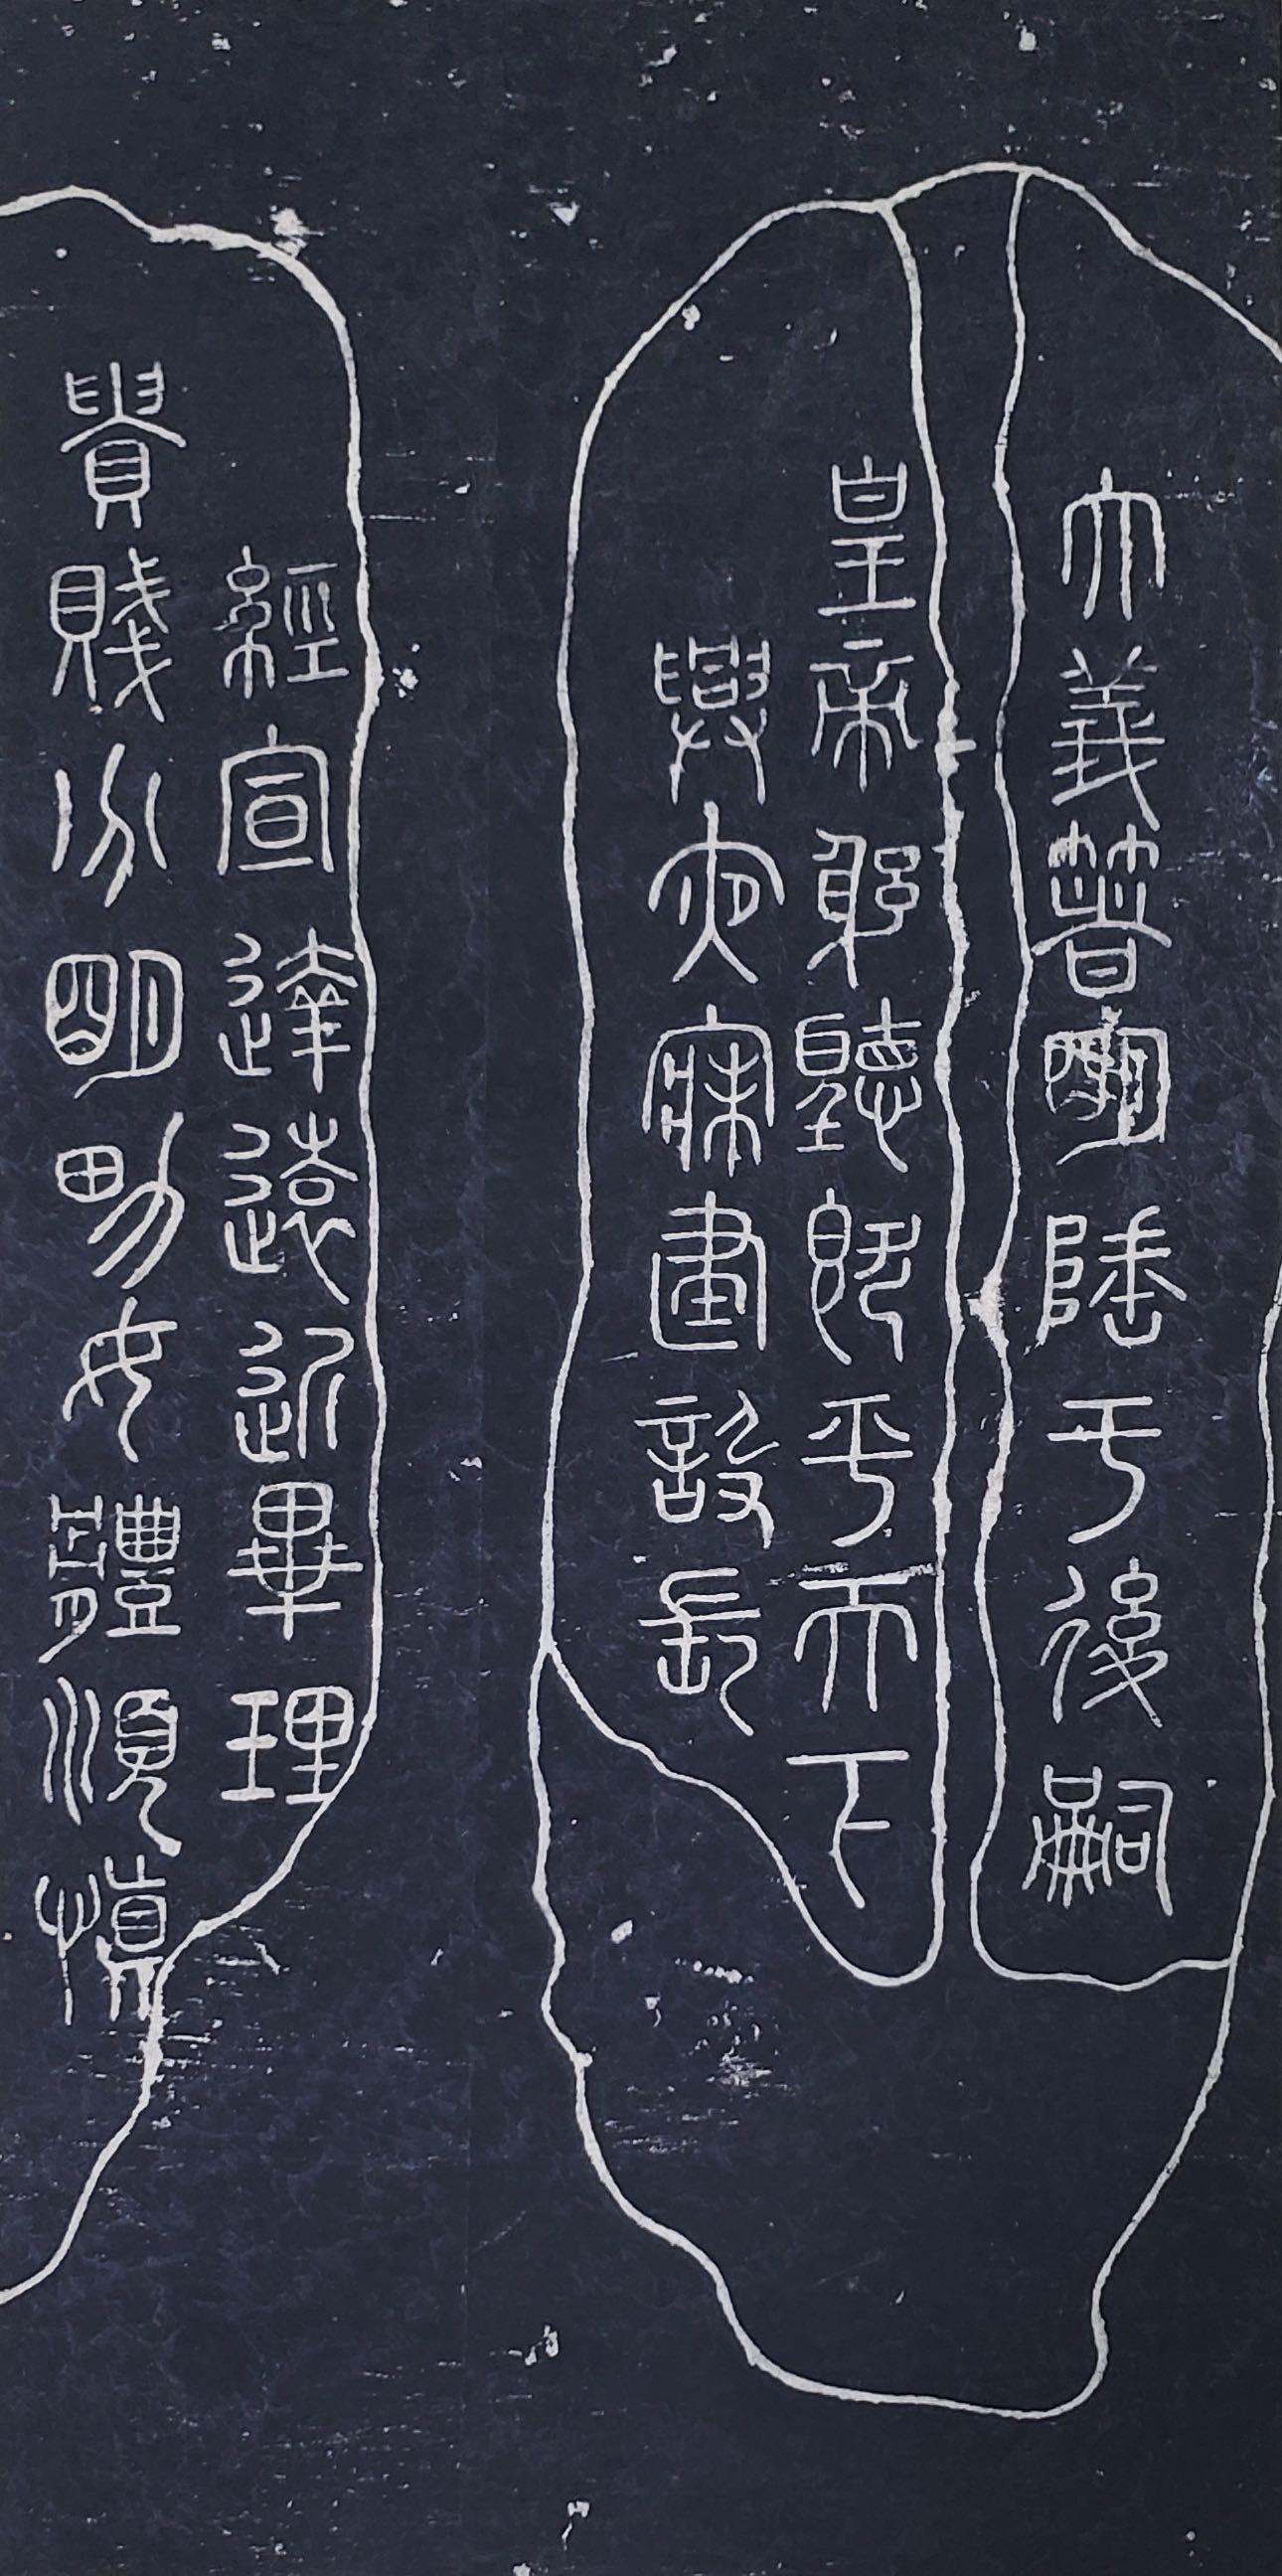 大義著明陲于後嗣
皇帝躬聽既平天下
興夜寐建設長
經宣達遠近畢理
貴賤分明男女體順慎